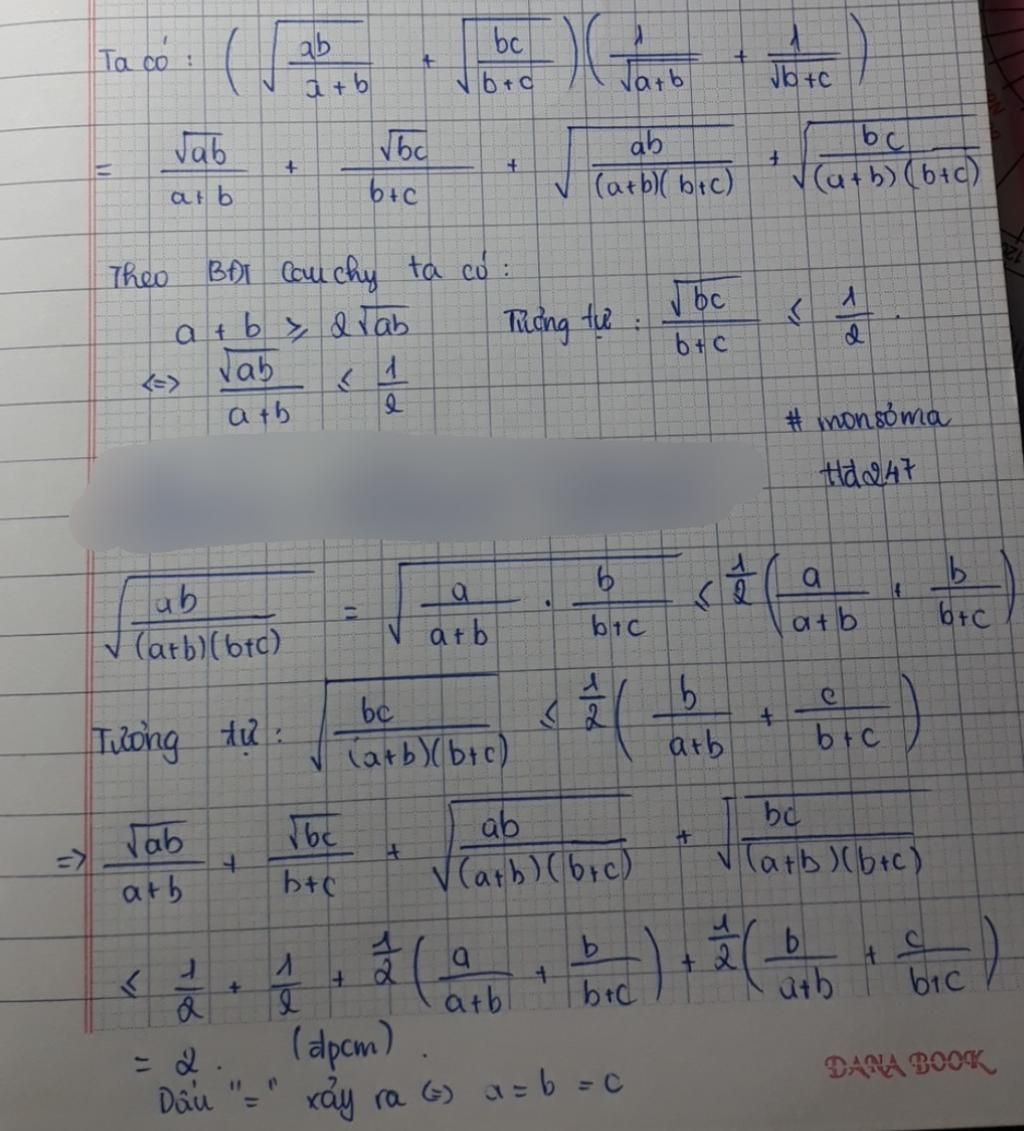 Ta có : (√(ab/(a+b)) + √(bc/(b+c)))(1/√(a+b) + 1/√(b+c))
= √ab/(a+b) + √bc/(b+c) + √(ab/((a+b)(b+c))) + √(bc/((a+b)(b+c)))
Theo BĐT Cauchy ta có :
a + b ≥ 2√ab Tương tự : √bc/(b+c) ≤ 1/2 .
<=> √ab/(a+b) ≤ 1/2
# monsóma
tld247
√(ab/((a+b)(b+c))) = √(a/(a+b) . b/(b+c)) ≤ 1/2 (a/(a+b) + b/(b+c))
Tương tự : √(bc/((a+b)(b+c))) ≤ 1/2 (b/(a+b) + c/(b+c))
=> √ab/(a+b) + √bc/(b+c) + √(ab/((a+b)(b+c))) + √(bc/((a+b)(b+c)))
≤ 1/2 + 1/2 + 1/2 (a/(a+b) + b/(b+c)) + 1/2 (b/(a+b) + c/(b+c))
= 2 . (đpcm) .
Dấu "=" xảy ra (=) a = b = c
DANA BOOK